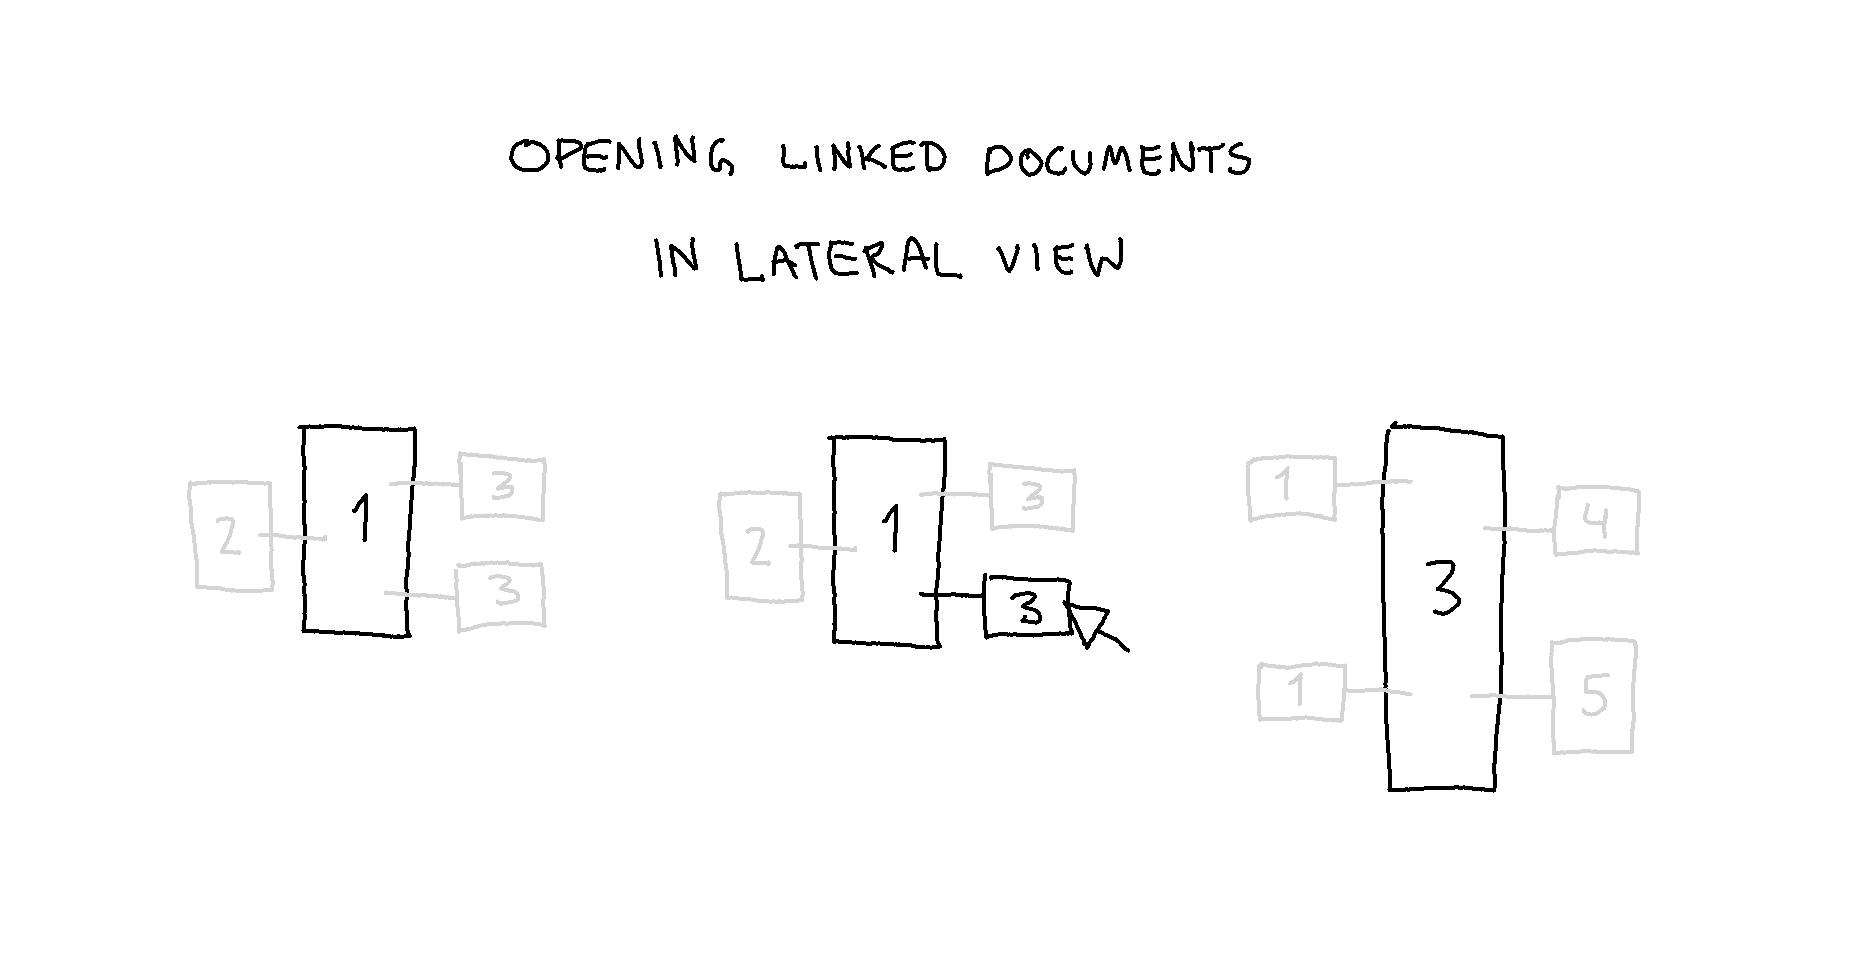 OPENING LINKED DOCUMENTS
IN LATERAL VIEW
2 1 3
3
2 1 3
3
1 3 4
1 5